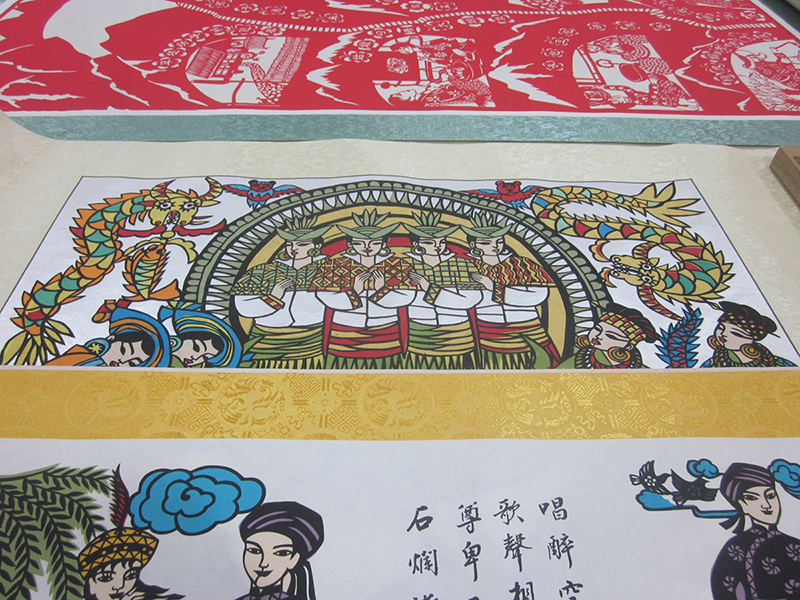 唱醉
歌聲相
尊卑
石爛